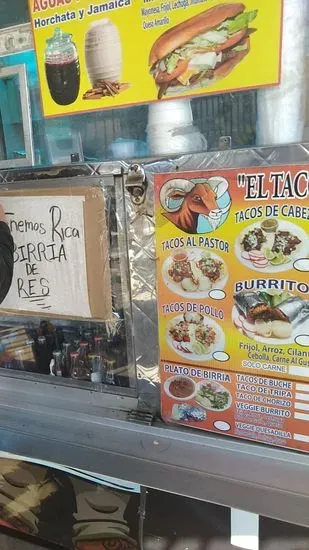 AGUAS
Horchata y Jamaica
Mayonesa, Frijol, Lechuga,
Queso Amarillo
Tenemos Rica
BIRRIA
DE
RES
"EL TACO
TACOS DE CABEZ
TACOS AL PASTOR
BURRITO
TACOS DE POLLO
Frijol, Arroz, Cilan
Cebolla, Carne Al Gus
SOLO CARNE
PLATO DE BIRRIA
TACOS DE BUCHE
TACO DE TRIPA
TACO DE CHORIZO
VEGGIE BURRITO
VEGGIE QUESADILLA